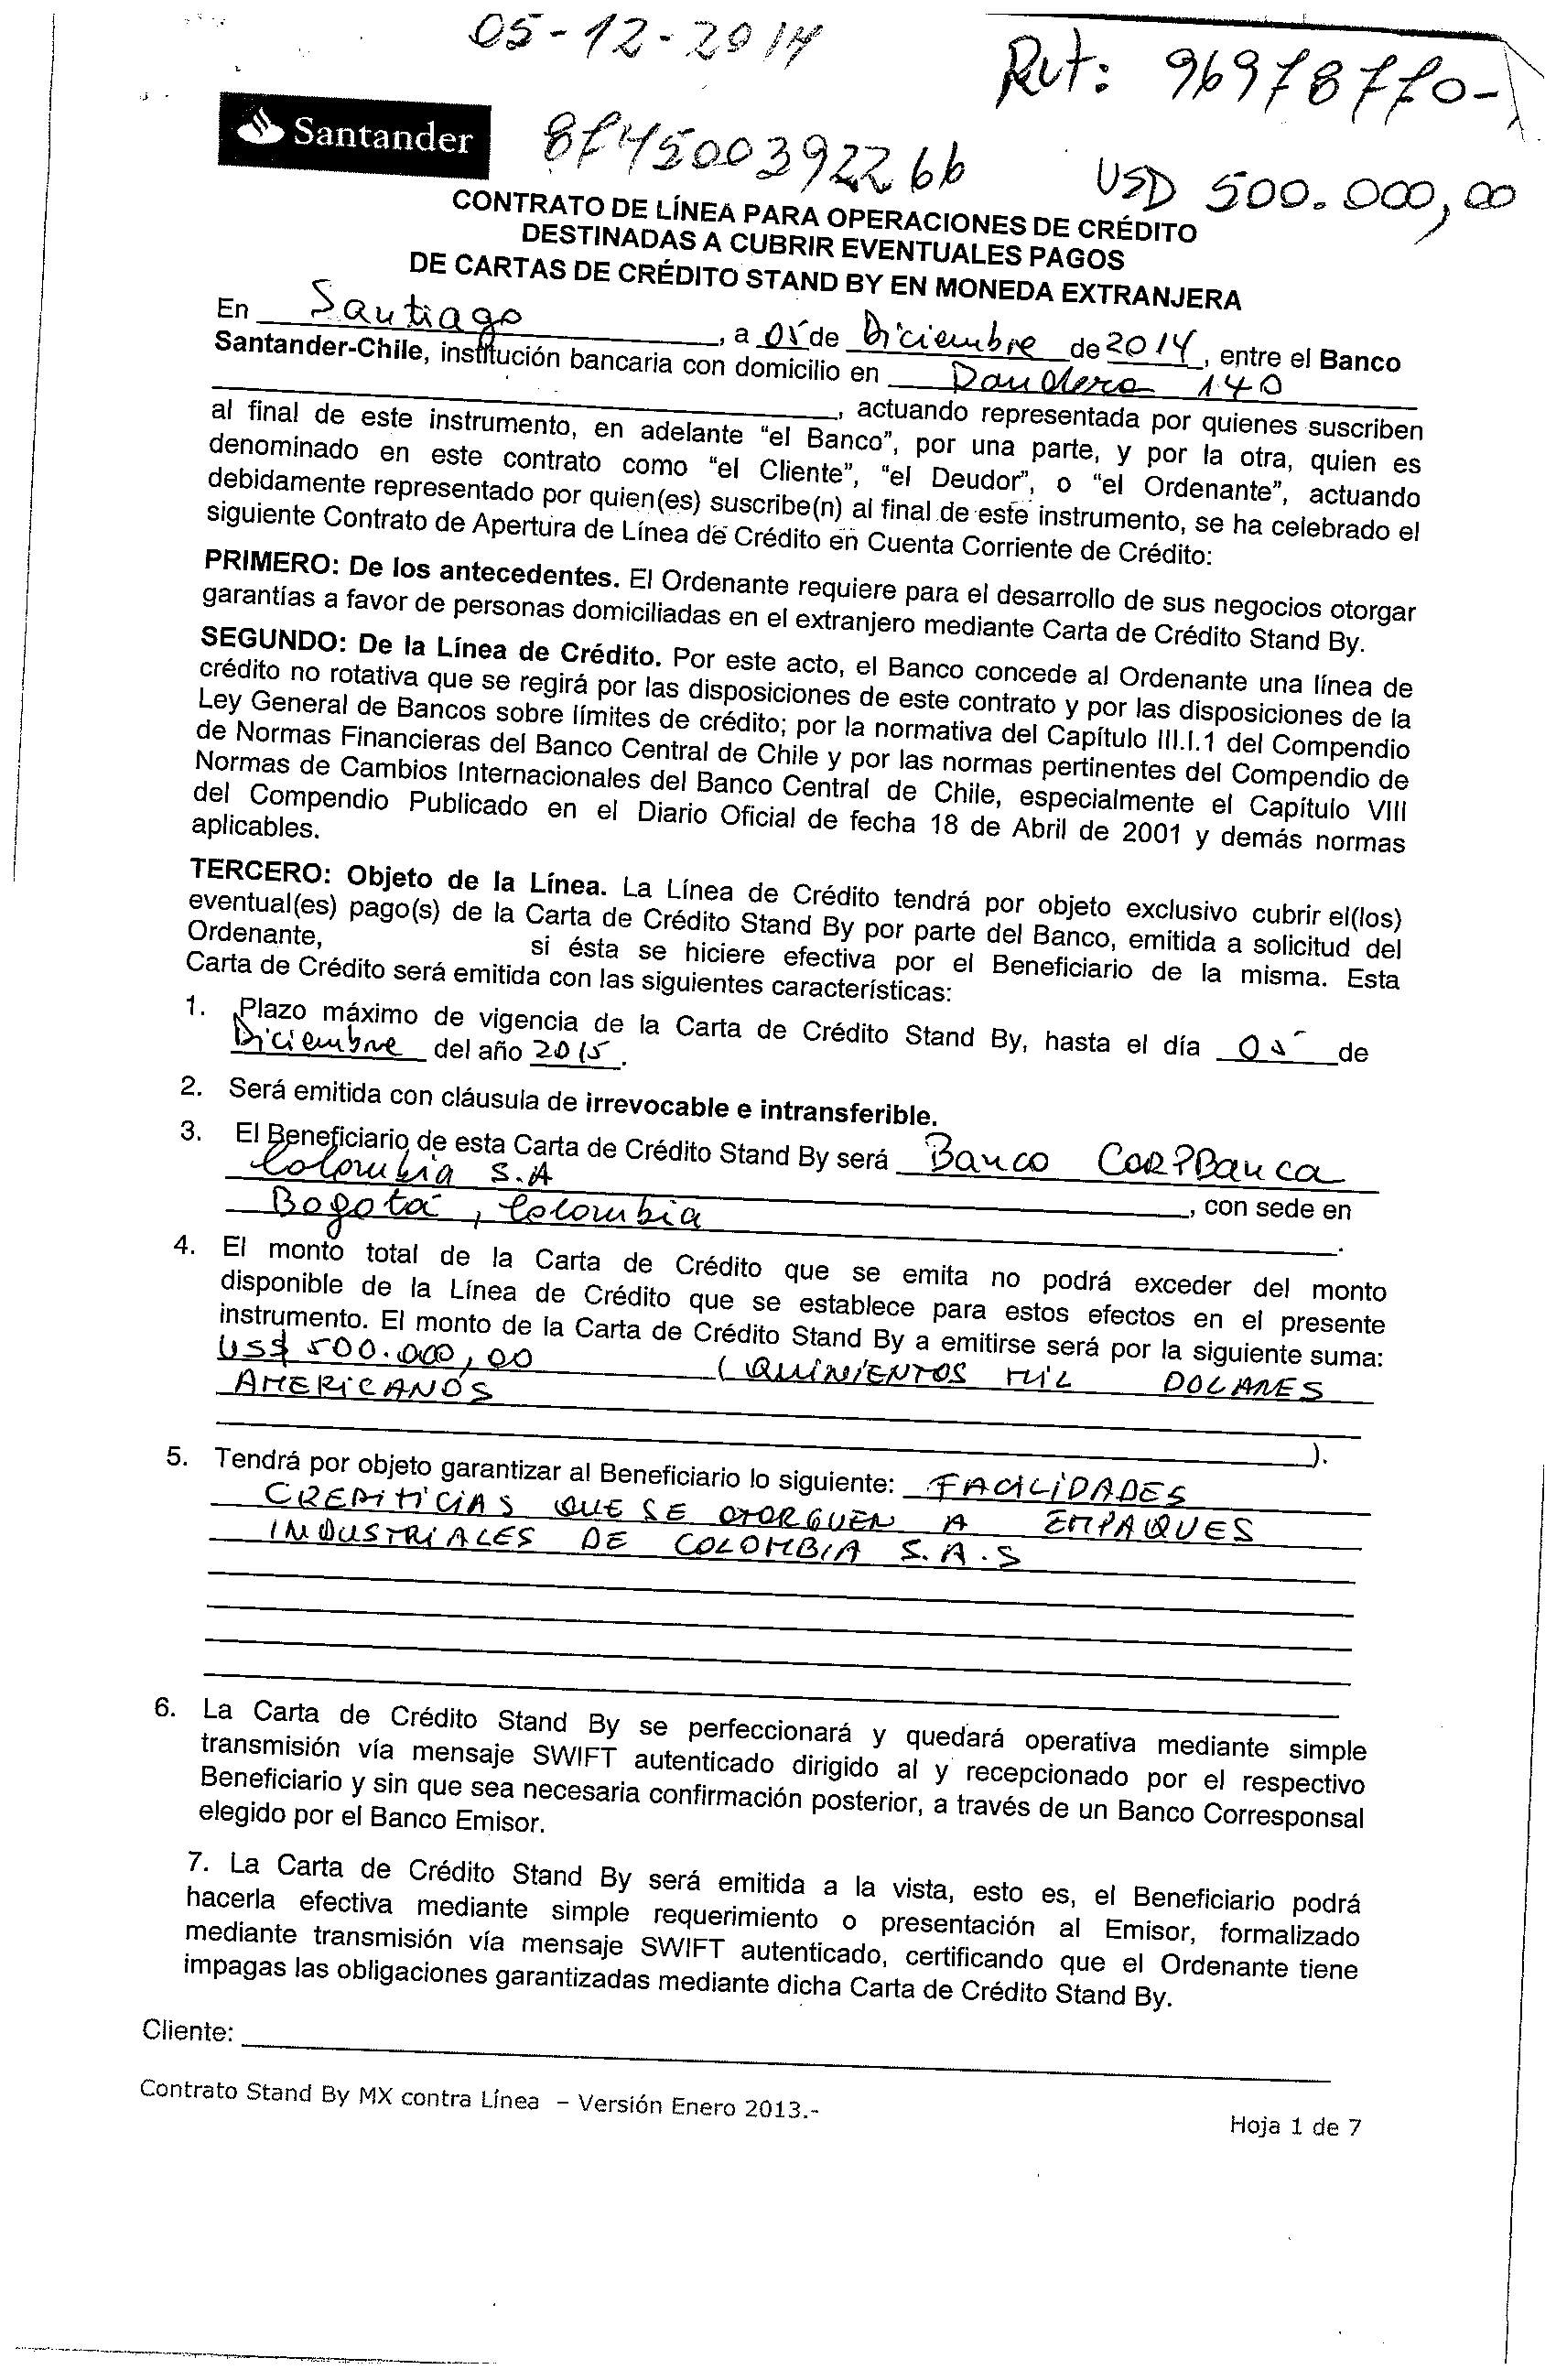 05-12-2014
Rut: 96978770-
Santander
874500392266
USD 500.000,00
CONTRATO DE LÍNEA PARA OPERACIONES DE CRÉDITO
DESTINADAS A CUBRIR EVENTUALES PAGOS
DE CARTAS DE CRÉDITO STAND BY EN MONEDA EXTRANJERA
En Santiago, a 05 de Diciembre de 2014, entre el Banco
Santander-Chile, institución bancaria con domicilio en Bandera 140
, actuando representada por quienes suscriben
al final de este instrumento, en adelante "el Banco", por una parte, y por la otra, quien es
denominado en este contrato como "el Cliente", "el Deudor", o "el Ordenante", actuando
debidamente representado por quien(es) suscribe(n) al final de este instrumento, se ha celebrado el
siguiente Contrato de Apertura de Línea de Crédito en Cuenta Corriente de Crédito:
PRIMERO: De los antecedentes. El Ordenante requiere para el desarrollo de sus negocios otorgar
garantías a favor de personas domiciliadas en el extranjero mediante Carta de Crédito Stand By.
SEGUNDO: De la Línea de Crédito. Por este acto, el Banco concede al Ordenante una línea de
crédito no rotativa que se regirá por las disposiciones de este contrato y por las disposiciones de la
Ley General de Bancos sobre límites de crédito; por la normativa del Capítulo III.I.1 del Compendio
de Normas Financieras del Banco Central de Chile y por las normas pertinentes del Compendio de
Normas de Cambios Internacionales del Banco Central de Chile, especialmente el Capítulo VIII
del Compendio Publicado en el Diario Oficial de fecha 18 de Abril de 2001 y demás normas
aplicables.
TERCERO: Objeto de la Línea. La Línea de Crédito tendrá por objeto exclusivo cubrir el(los)
eventual(es) pago(s) de la Carta de Crédito Stand By por parte del Banco, emitida a solicitud del
Ordenante, si ésta se hiciere efectiva por el Beneficiario de la misma. Esta
Carta de Crédito será emitida con las siguientes características:
1. Plazo máximo de vigencia de la Carta de Crédito Stand By, hasta el día 05 de
Diciembre del año 2015.
2. Será emitida con cláusula de irrevocable e intransferible.
3. El Beneficiario de esta Carta de Crédito Stand By será Banco CORPBanca
Colombia S.A
, con sede en
Bogotá, Colombia.
4. El monto total de la Carta de Crédito que se emita no podrá exceder del monto
disponible de la Línea de Crédito que se establece para estos efectos en el presente
instrumento. El monto de la Carta de Crédito Stand By a emitirse será por la siguiente suma:
US$ 500.000,00 (QUINIENTOS MIL DOLARES
AMERICANOS
).
5. Tendrá por objeto garantizar al Beneficiario lo siguiente: FACILIDADES
CREDITICIAS QUE SE OTORGUEN A EMPAQUES
INDUSTRIALES DE COLOMBIA S.A.S
6. La Carta de Crédito Stand By se perfeccionará y quedará operativa mediante simple
transmisión vía mensaje SWIFT autenticado dirigido al y recepcionado por el respectivo
Beneficiario y sin que sea necesaria confirmación posterior, a través de un Banco Corresponsal
elegido por el Banco Emisor.
7. La Carta de Crédito Stand By será emitida a la vista, esto es, el Beneficiario podrá
hacerla efectiva mediante simple requerimiento o presentación al Emisor, formalizado
mediante transmisión vía mensaje SWIFT autenticado, certificando que el Ordenante tiene
impagas las obligaciones garantizadas mediante dicha Carta de Crédito Stand By.
Cliente:
Contrato Stand By MX contra Línea – Versión Enero 2013.-
Hoja 1 de 7